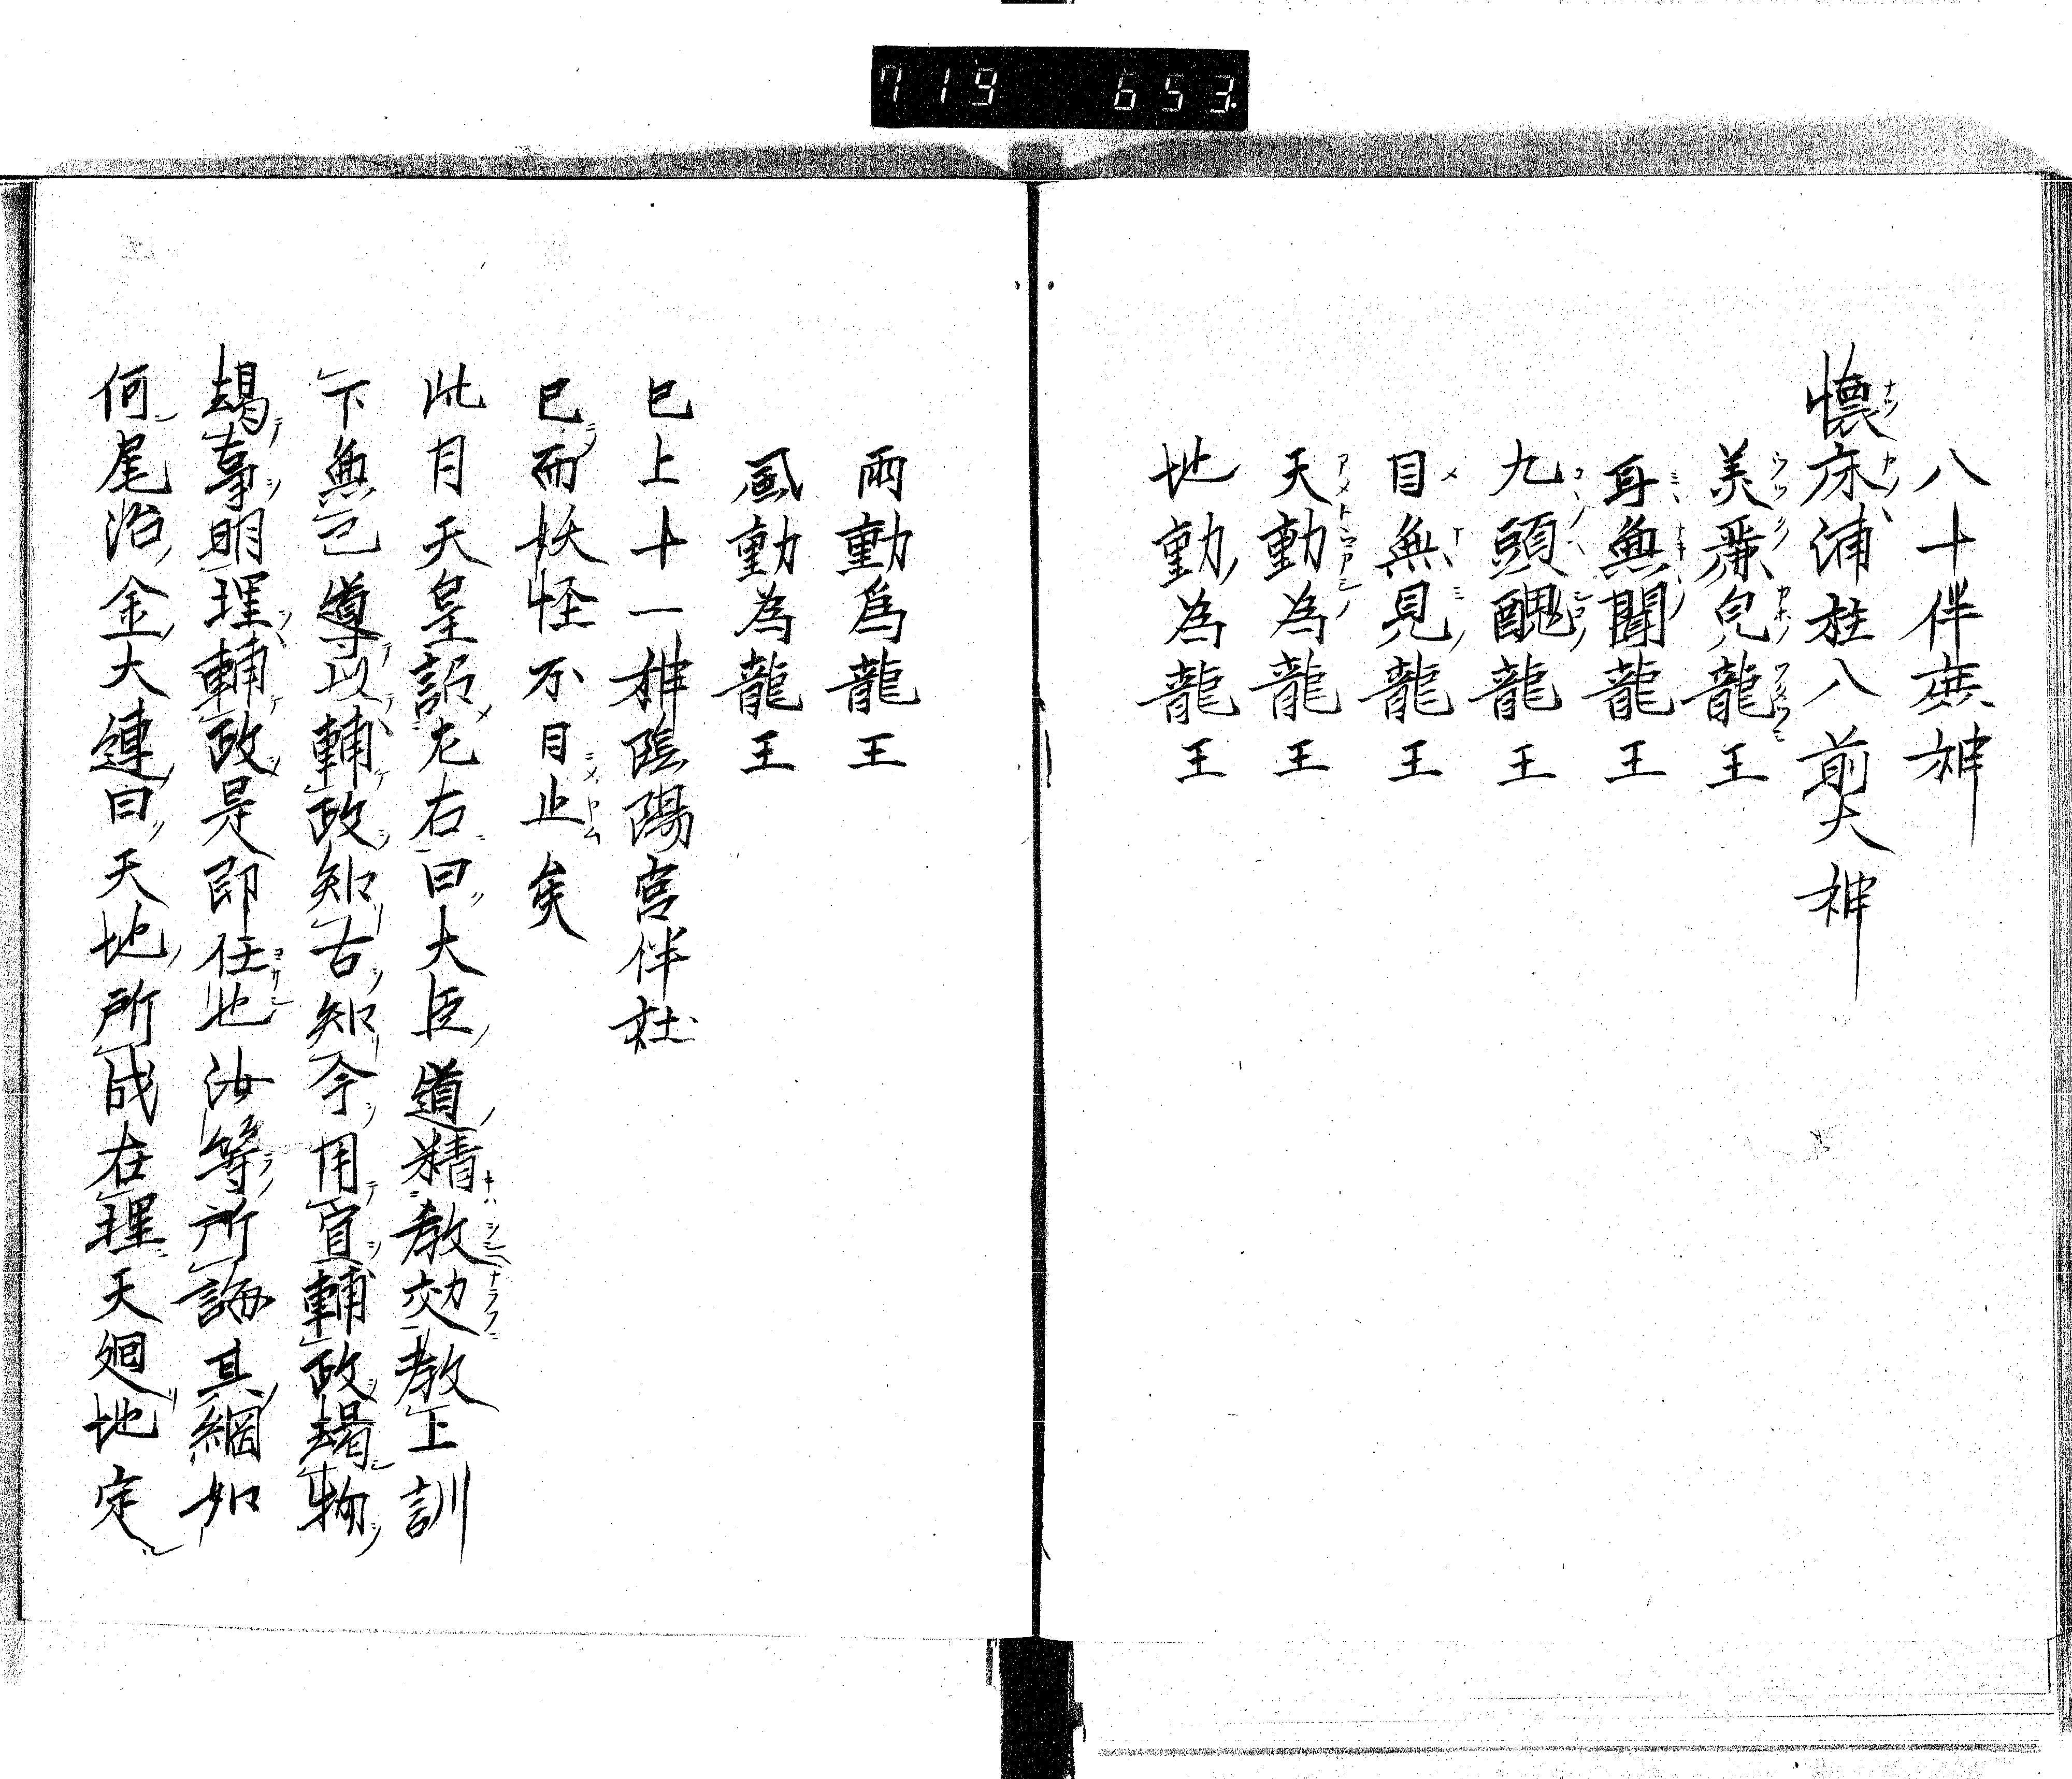 719 653
八十伴無神
懐床浦柱八前大神
美麗皃龍王
耳無聞龍王
九頭醜龍王
目無見龍王
天動為龍王
地動為龍王
雨動爲龍王
風動為龍王
已上十一神陰陽宮伴社
已而妖怪不日止矣
此月天皇詔左右曰大臣道精教效教上訓
下無已導以輔政知古知今用宜輔政竭物
竭事明理輔政是即任也汝等所誨其綱如
何尾治金大連曰天地所成在理天廻地定